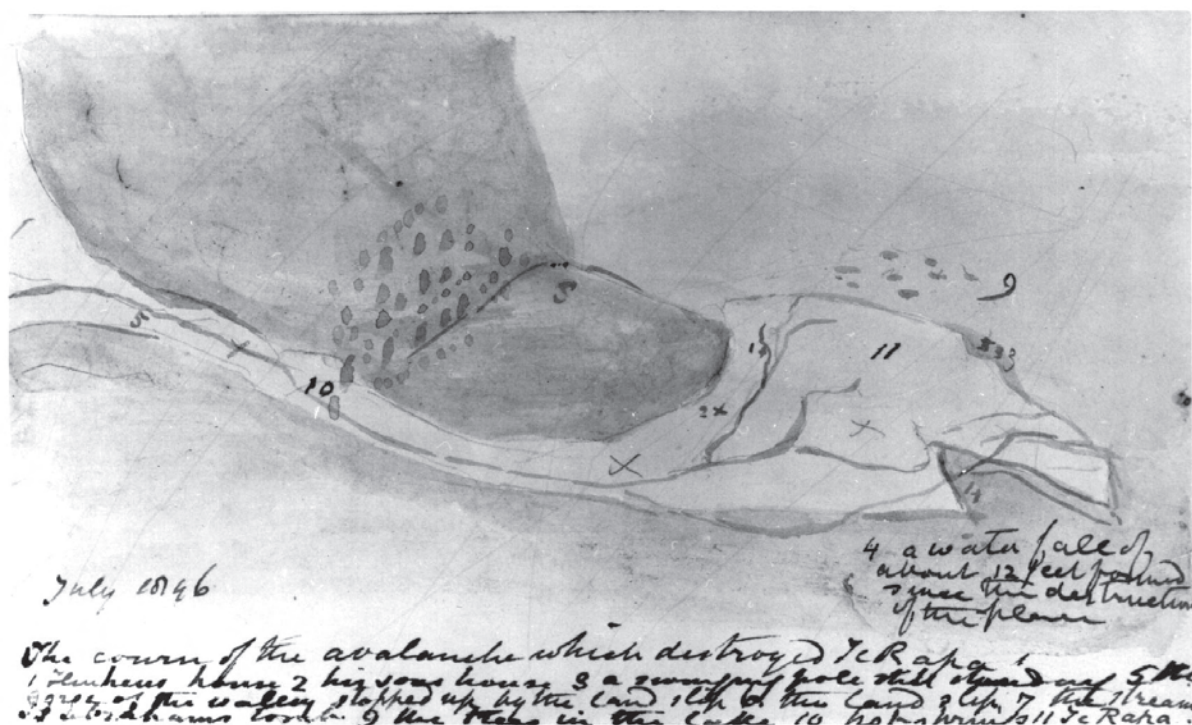 9
8
5
11
12
10
2
14
4 a water fall of
about 12 feet formed
since the destruction
of the place
July 1846
The course of the avalanche which destroyed Te Rapa
1 house 2 his sons house 3 a swinging pole still standing 5 the
gorge of the valley stopped up by the land slip 6 the land slip 7 the stream
tomb 9 the trees in the lake 10 hot springs 11 Te Rapa